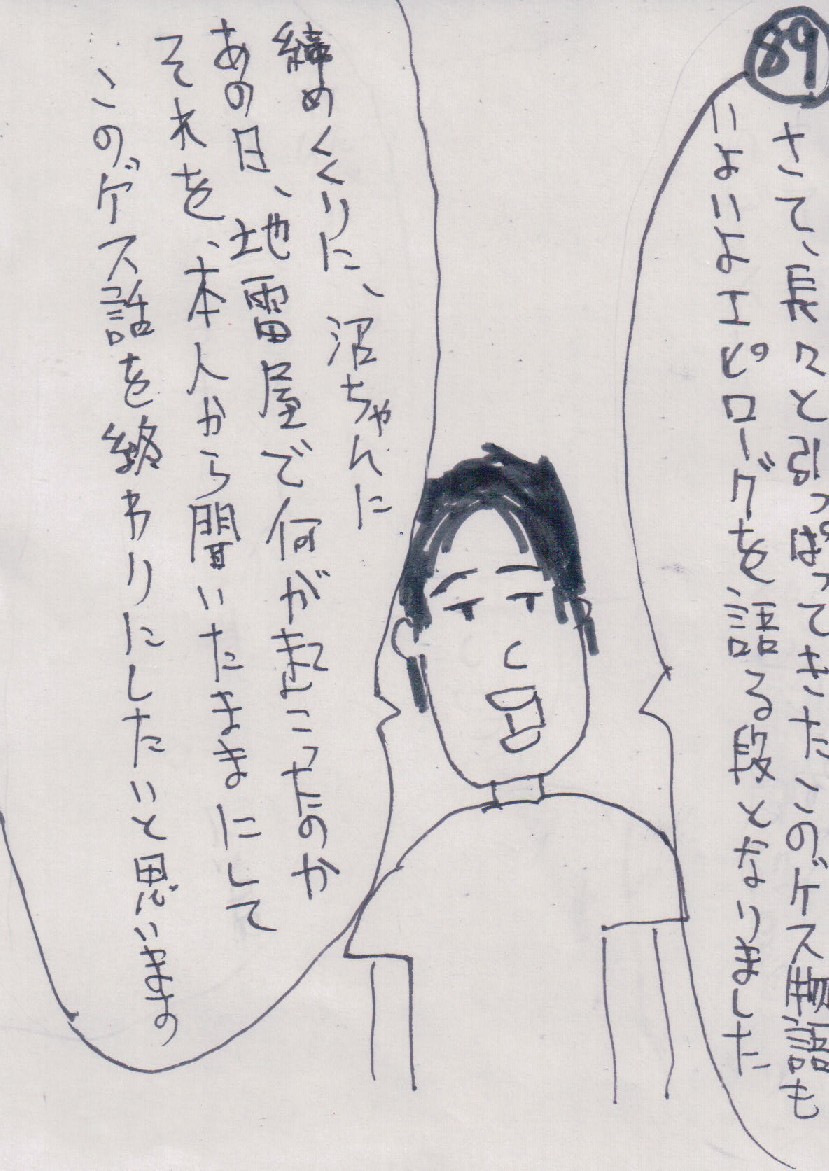 89
さて、長々と引っぱってきたこのゲス物語も
いよいよエピローグを語る段となりました
締めくくりに、沼ちゃんに
あの日、地雷屋で何が起こったのか
それを、本人から聞いたままにして
このゲス話を終わりにしたいと思います